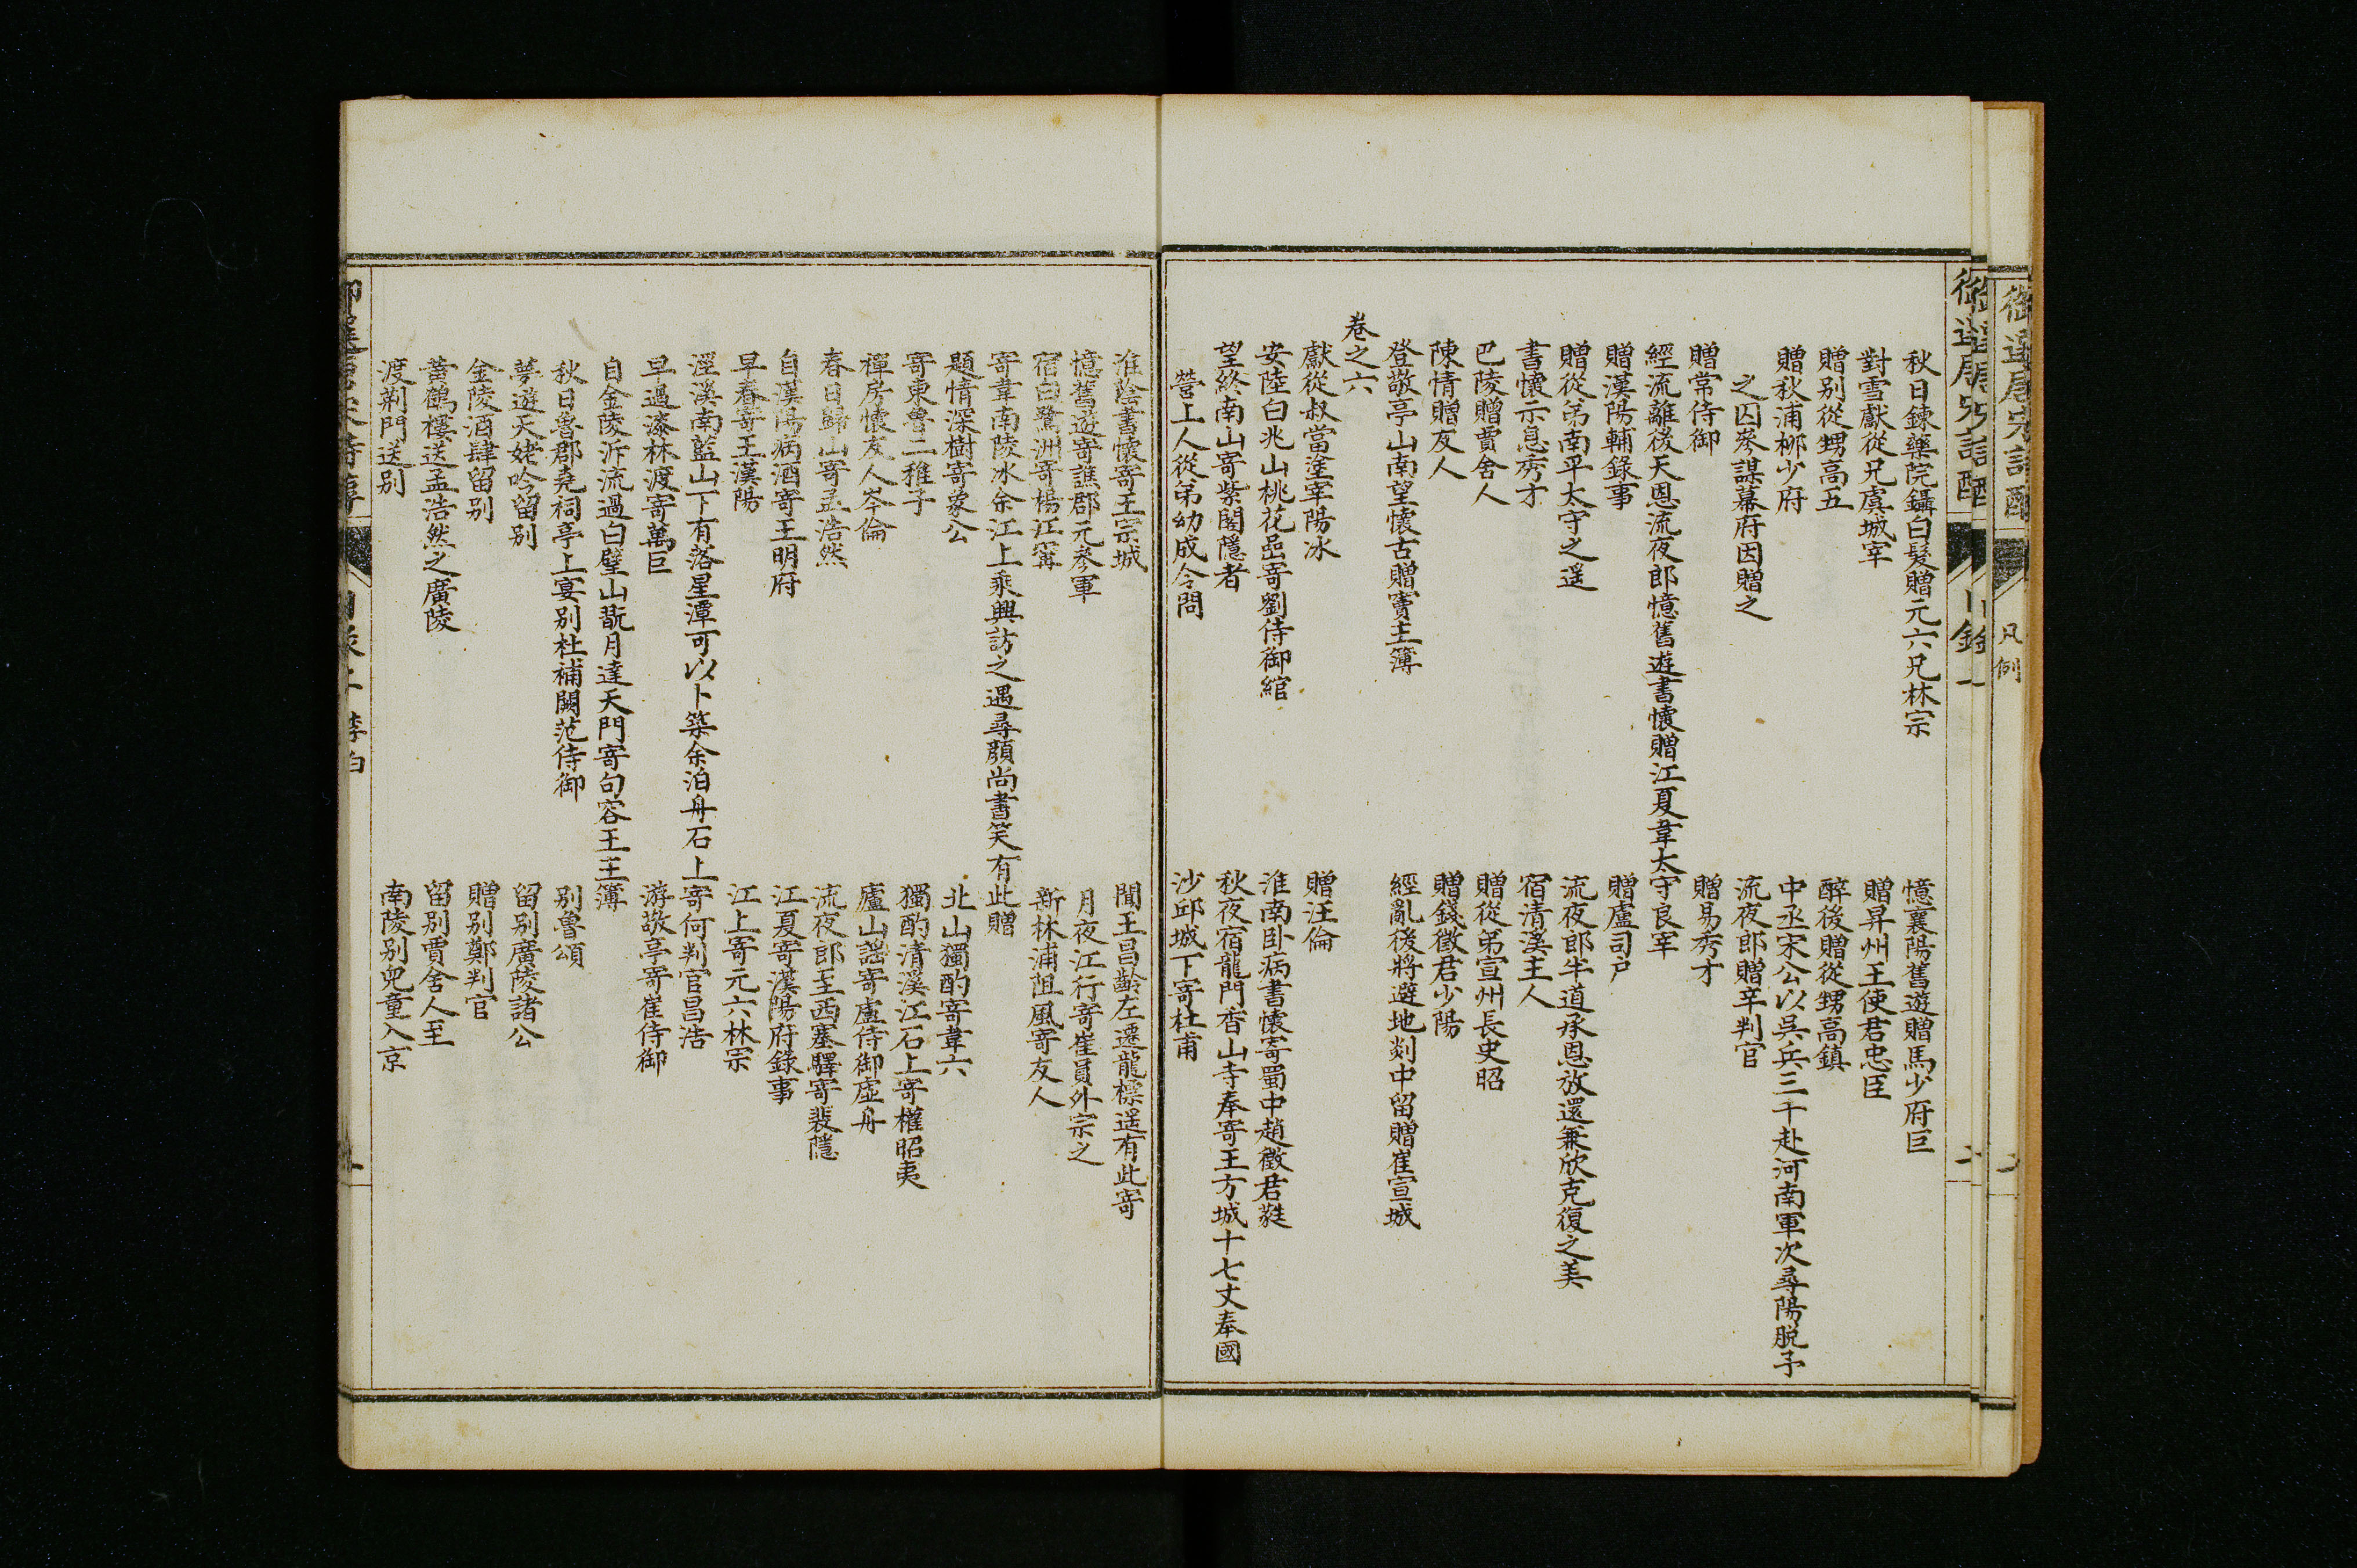 秋日鍊藥院鑷白髮贈元六兄林宗 憶襄陽舊遊贈馬少府巨
對雪獻從兄虞城宰 贈昇州王使君忠臣
贈别從甥高五 醉後贈從甥高鎮
贈秋浦栁少府 中丞宋公以吳兵三千赴河南軍次尋陽脱予
之囚參謀幕府因贈之 流夜郎贈辛判官
贈常侍御 贈易秀才
經流離後天恩流夜郎憶舊遊書懷贈江夏韋太守良宰
贈漢陽輔錄事 贈盧司户
贈從弟南平太守之遥 流夜郎半道承恩放還兼欣克復之美
書懷示息秀才 宿清溪主人
巴陵贈賈舍人 贈從弟宣州長史昭
陳情贈友人 贈錢徵君少陽
登敬亭山南望懷古贈竇主簿 經亂後將避地剡中留贈崔宣城
卷之六
獻從叔當塗宰陽冰 贈汪倫
安陸白兆山桃花岩寄劉侍御綰 淮南卧病書懷寄蜀中趙徵君蕤
望終南山寄紫閣隱者 秋夜宿龍門香山寺奉寄王方城十七丈奉國
營上人從弟幼成令問 沙邱城下寄杜甫
淮陰書懷寄王宗城 聞王昌齡左遷龍標遥有此寄
憶舊遊寄譙郡元參軍 月夜江行寄崔員外宗之
宿白鷺洲寄楊江寧 新林浦阻風寄友人
寄韋南陵冰余江上乘興訪之遇尋顔尚書笑有此贈
題情深樹寄象公 北山獨酌寄韋六
寄東魯二稚子 獨酌清溪江石上寄權昭夷
禪房懷友人岑倫 廬山謡寄盧侍御虛舟
春日歸山寄孟浩然 流夜郎至西塞驛寄裴隱
自漢陽病酒寄王明府 江夏寄漢陽府錄事
早春寄王漢陽 江上寄元六林宗
涇溪南藍山下有落星潭可以卜築余泊舟石上寄何判官昌浩
早過漆林渡寄萬巨 游敬亭寄崔侍御
自金陵泝流過白壁山翫月達天門寄句容王主簿
秋日魯郡堯祠亭上宴别杜補闕范侍御 别魯頌
夢遊天姥吟留别 留别廣陵諸公
金陵酒肆留别 贈别鄭判官
黄鶴樓送孟浩然之廣陵 留别賈舍人至
渡荆門送别 南陵别兒童入京
凡例